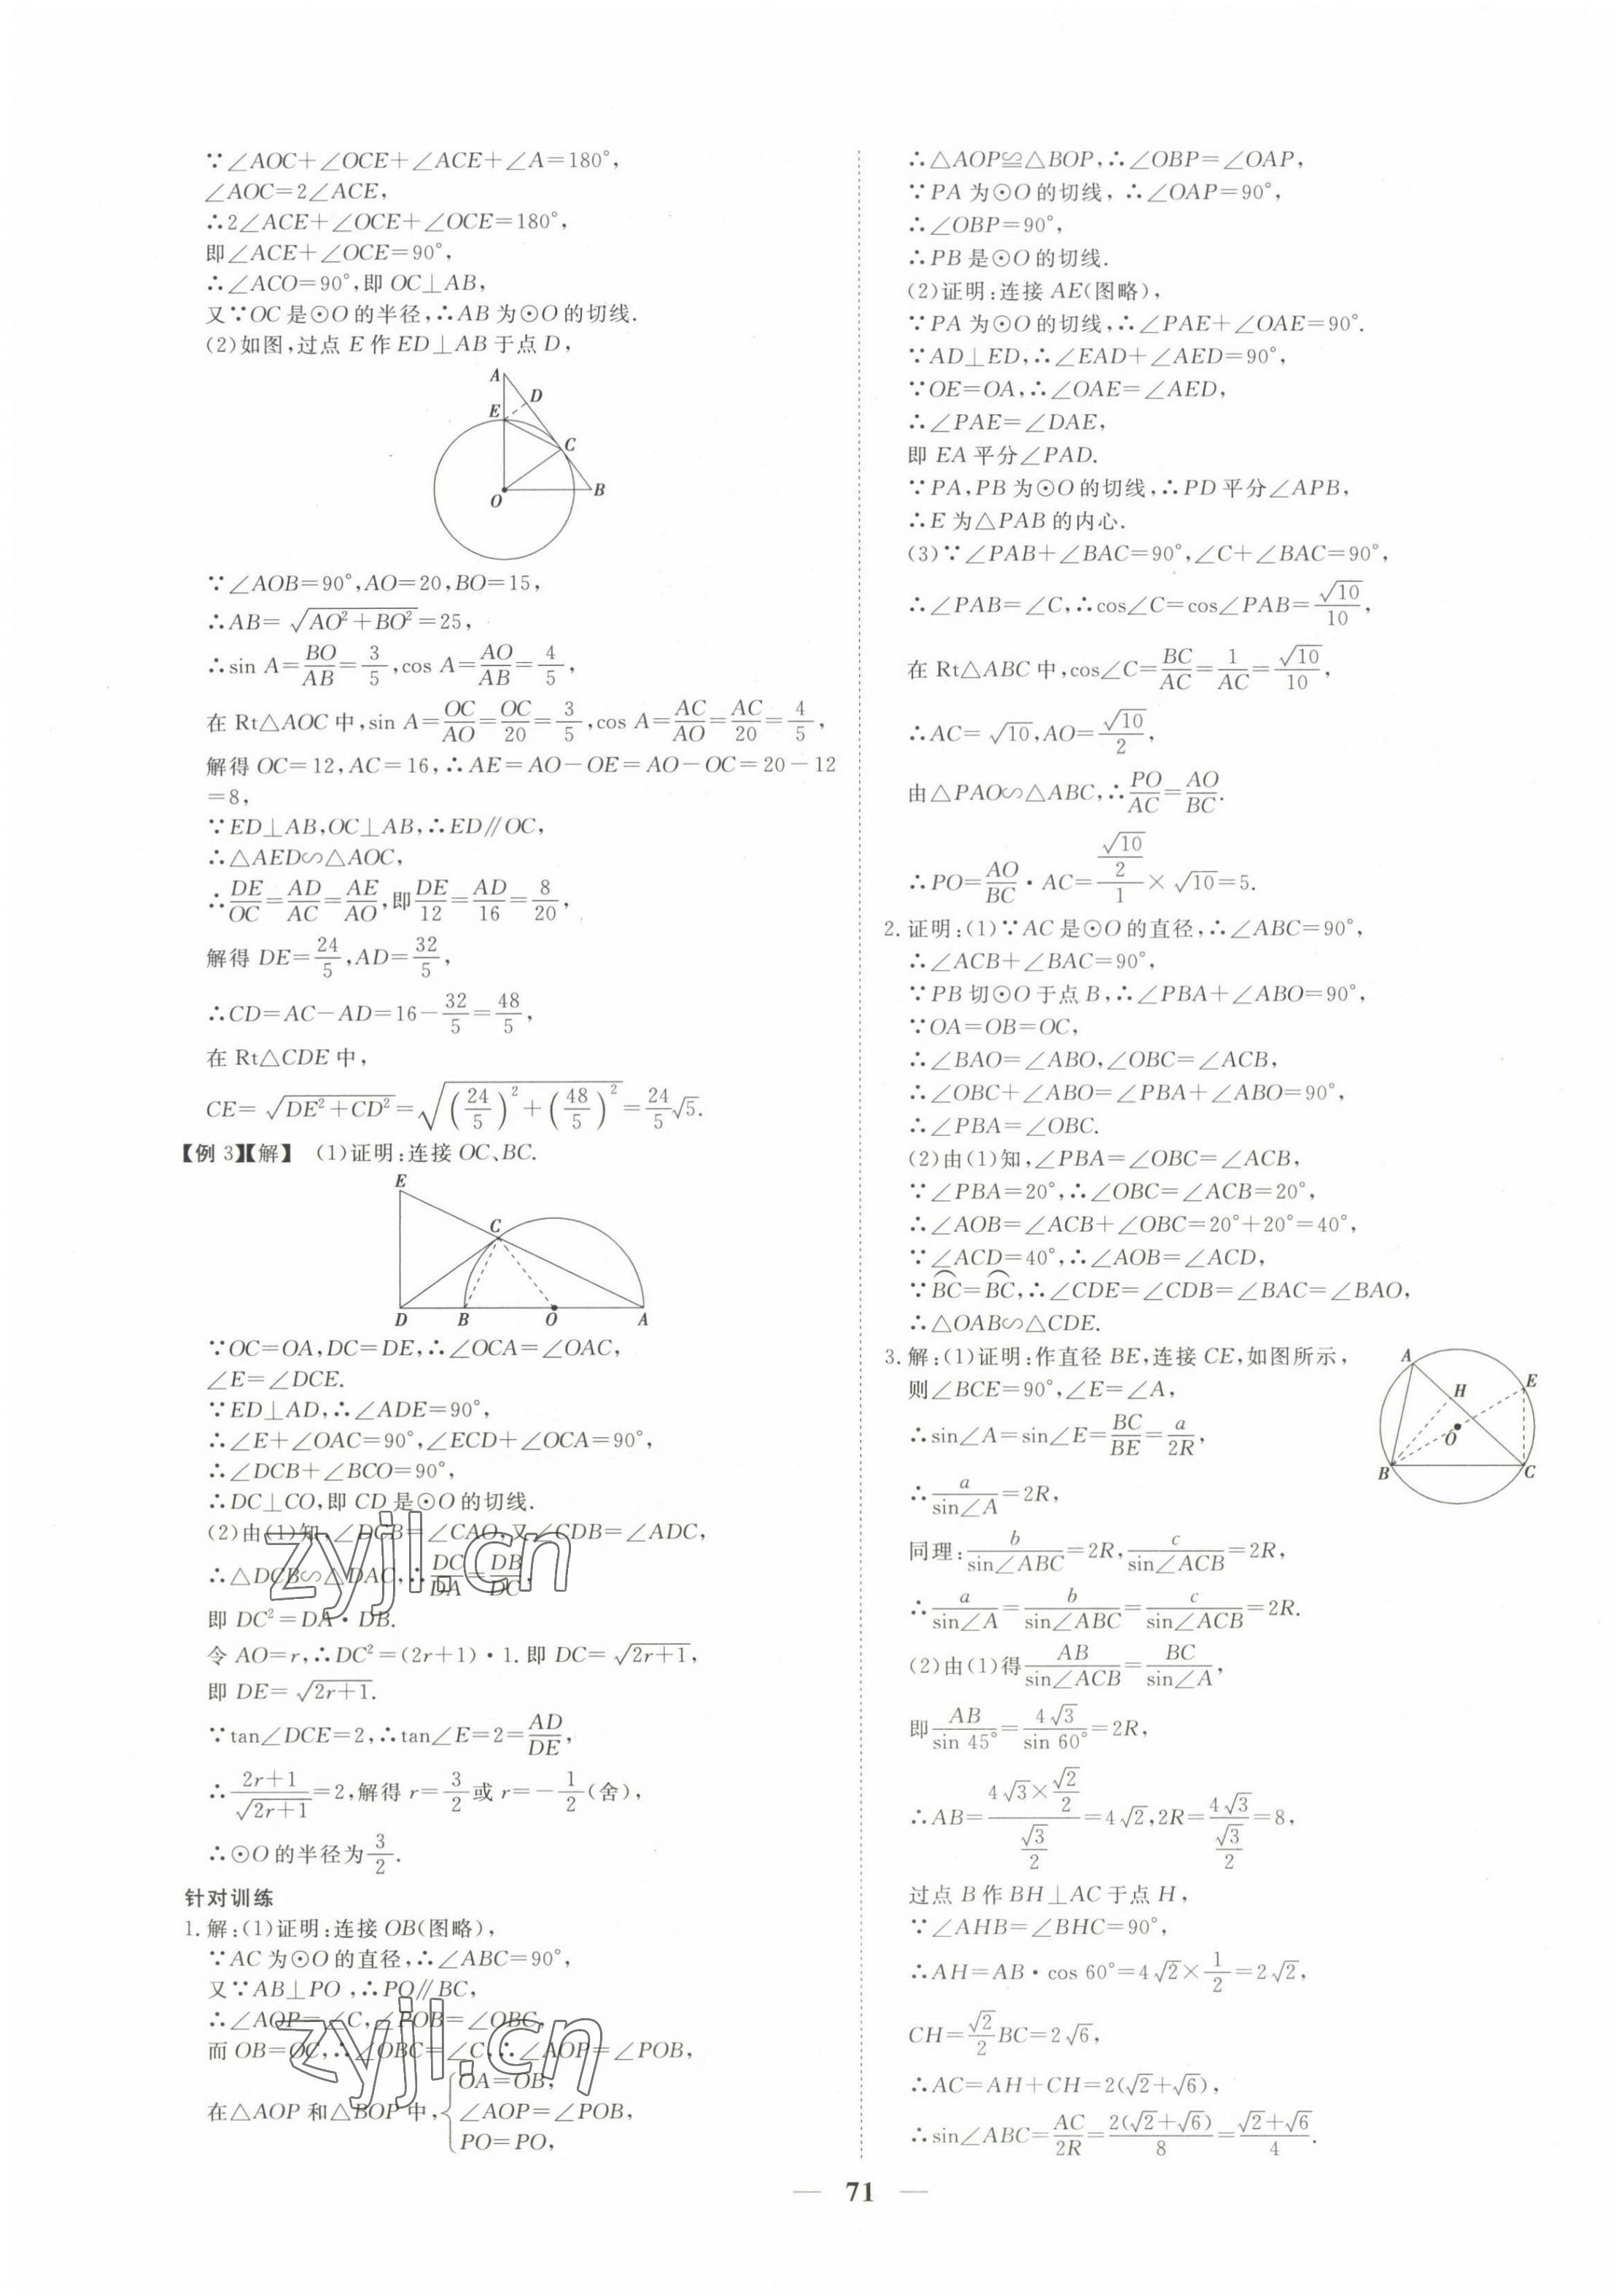 ∵∠AOC+∠OCE+∠ACE+∠A=180°,
∠AOC=2∠ACE,
∴2∠ACE+∠OCE+∠OCE=180°,
即∠ACE+∠OCE=90°,
∴∠ACO=90°,即OC⊥AB,
又∵OC是⊙O的半径,∴AB为⊙O的切线.
(2)如图,过点E作ED⊥AB于点D,
A
D
E
C
O
B
∵∠AOB=90°,AO=20,BO=15,
∴AB=√(AO²+BO²)=25,
∴sin A=BO/AB=3/5,cos A=AO/AB=4/5,
在Rt△AOC中,sin A=OC/AO=OC/20=3/5,cos A=AC/AO=AC/20=4/5,
解得OC=12,AC=16,∴AE=AO−OE=AO−OC=20−12
=8,
∵ED⊥AB,OC⊥AB,∴ED∥OC,
∴△AED∽△AOC,
∴DE/OC=AD/AC=AE/AO,即DE/12=AD/16=8/20,
解得DE=24/5,AD=32/5,
∴CD=AC−AD=16−32/5=48/5,
在Rt△CDE中,
CE=√(DE²+CD²)=√((24/5)²+(48/5)²)=24/5√5.
【例3】【解】 (1)证明:连接OC、BC.
E
C
D B O A
∵OC=OA,DC=DE,∴∠OCA=∠OAC,
∠E=∠DCE.
∵ED⊥AD,∴∠ADE=90°,
∴∠E+∠OAC=90°,∠ECD+∠OCA=90°,
∴∠DCB+∠BCO=90°,
∴DC⊥CO,即CD是⊙O的切线.
(2)由(1)知,∠DCB=∠CAO,又∠CDB=∠ADC,
∴△DCB∽△DAC,∴DC/DA=DB/DC,
即DC²=DA·DB.
令AO=r,∴DC²=(2r+1)·1.即DC=√(2r+1),
即DE=√(2r+1).
∵tan∠DCE=2,∴tan∠E=2=AD/DE,
∴(2r+1)/√(2r+1)=2,解得r=3/2或r=−1/2(舍),
∴⊙O的半径为3/2.
针对训练
1.解:(1)证明:连接OB(图略),
∵AC为⊙O的直径,∴∠ABC=90°,
又∵AB⊥PO,∴PO∥BC,
∴∠AOP=∠C,∠POB=∠OBC,
而OB=OC,∴∠OBC=∠C,∴∠AOP=∠POB,
在△AOP和△BOP中,{OA=OB,
∠AOP=∠POB,
PO=PO,
∴△AOP≌△BOP,∴∠OBP=∠OAP,
∵PA为⊙O的切线,∴∠OAP=90°,
∴∠OBP=90°,
∴PB是⊙O的切线.
(2)证明:连接AE(图略),
∵PA为⊙O的切线,∴∠PAE+∠OAE=90°.
∵AD⊥ED,∴∠EAD+∠AED=90°,
∵OE=OA,∴∠OAE=∠AED,
∴∠PAE=∠DAE,
即EA平分∠PAD.
∵PA,PB为⊙O的切线,∴PD平分∠APB,
∴E为△PAB的内心.
(3)∵∠PAB+∠BAC=90°,∠C+∠BAC=90°,
∴∠PAB=∠C,∴cos∠C=cos∠PAB=√10/10,
在Rt△ABC中,cos∠C=BC/AC=1/AC=√10/10,
∴AC=√10,AO=√10/2,
由△PAO∽△ABC,∴PO/AC=AO/BC.
∴PO=AO/BC·AC=(√10/2)/1×√10=5.
2.证明:(1)∵AC是⊙O的直径,∴∠ABC=90°,
∴∠ACB+∠BAC=90°,
∵PB切⊙O于点B,∴∠PBA+∠ABO=90°,
∵OA=OB=OC,
∴∠BAO=∠ABO,∠OBC=∠ACB,
∴∠OBC+∠ABO=∠PBA+∠ABO=90°,
∴∠PBA=∠OBC.
(2)由(1)知,∠PBA=∠OBC=∠ACB,
∵∠PBA=20°,∴∠OBC=∠ACB=20°,
∴∠AOB=∠ACB+∠OBC=20°+20°=40°,
∵∠ACD=40°,∴∠AOB=∠ACD,
∵⌒BC=⌒BC,∴∠CDE=∠CDB=∠BAC=∠BAO,
∴△OAB∽△CDE.
3.解:(1)证明:作直径BE,连接CE,如图所示,
则∠BCE=90°,∠E=∠A,
∴sin∠A=sin∠E=BC/BE=a/2R,
∴a/sin∠A=2R,
同理:b/sin∠ABC=2R,c/sin∠ACB=2R,
∴a/sin∠A=b/sin∠ABC=c/sin∠ACB=2R.
A
H
E
O
B
C
(2)由(1)得AB/sin∠ACB=BC/sin∠A,
即AB/sin 45°=4√3/sin 60°=2R,
∴AB=(4√3×√2/2)/(√3/2)=4√2,2R=4√3/(√3/2)=8,
过点B作BH⊥AC于点H,
∵∠AHB=∠BHC=90°,
∴AH=AB·cos 60°=4√2×1/2=2√2,
CH=√2/2BC=2√6,
∴AC=AH+CH=2(√2+√6),
∴sin∠ABC=AC/2R=2(√2+√6)/8=(√2+√6)/4.
zyjl.cn
zyjl.cn
— 71 —